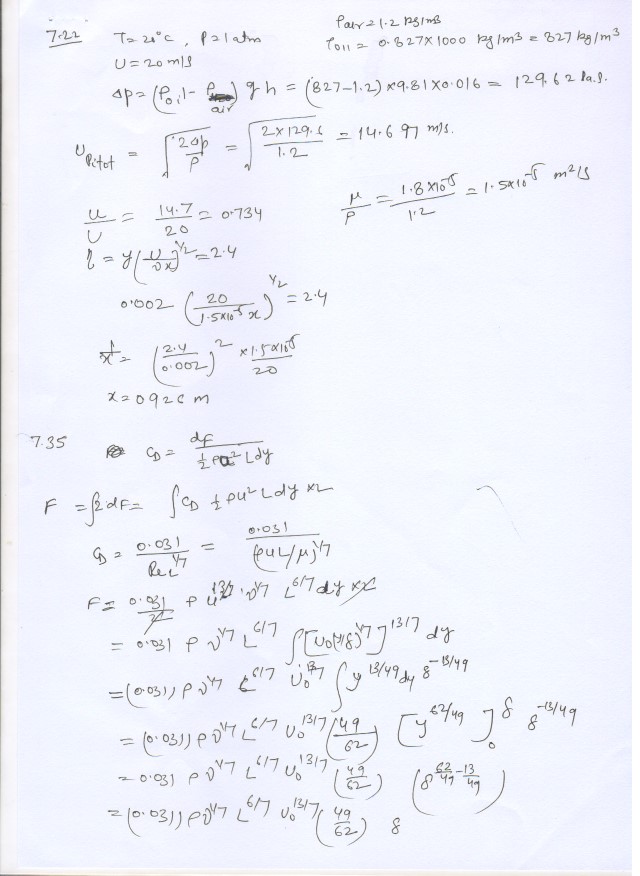 ρair = 1.2 kg/m3
7.22 T = 20°C , P = 1 atm ρoil = 0.827×1000 kg/m3 = 827 kg/m3
U = 20 m/s
Δp = (ρoil - ρair) gh = (827-1.2) × 9.81 × 0.016 = 129.62 Pa.
UPitot = √(2Δp/ρ) = √(2×129.6/1.2) = 14.697 m/s.
u/U = 14.7/20 = 0.734 μ/ρ = 1.8×10^-5/1.2 = 1.5×10^-5 m2/s
η = y(U/υx)^1/2 = 2.4
0.002 (20/1.5×10^-5 x)^1/2 = 2.4
1/x = (2.4/0.002)^2 × 1.5×10^-5/20
x = 0.926 m
7.35 CD = dF/(½ρu² L dy)
F = ∫2dF = ∫CD ½ ρu² L dy ×2
CD = 0.031/ReL^1/7 = 0.031/(ρuL/μ)^1/7
F = 0.031/2 ρ u^13/7 υ^1/7 L^6/7 dy ×2
= 0.031 ρ υ^1/7 L^6/7 ∫[U0(y/δ)^1/7]^13/7 dy
= (0.031) ρ υ^1/7 L^6/7 U0^13/7 ∫y^13/49 dy δ^-13/49
= (0.031) ρ υ^1/7 L^6/7 U0^13/7 (49/62) [y^62/49]0^δ δ^-13/49
= 0.031 ρ υ^1/7 L^6/7 U0^13/7 (49/62) (δ^62/49-13/49)
= (0.031) ρ υ^1/7 L^6/7 U0^13/7 (49/62) δ